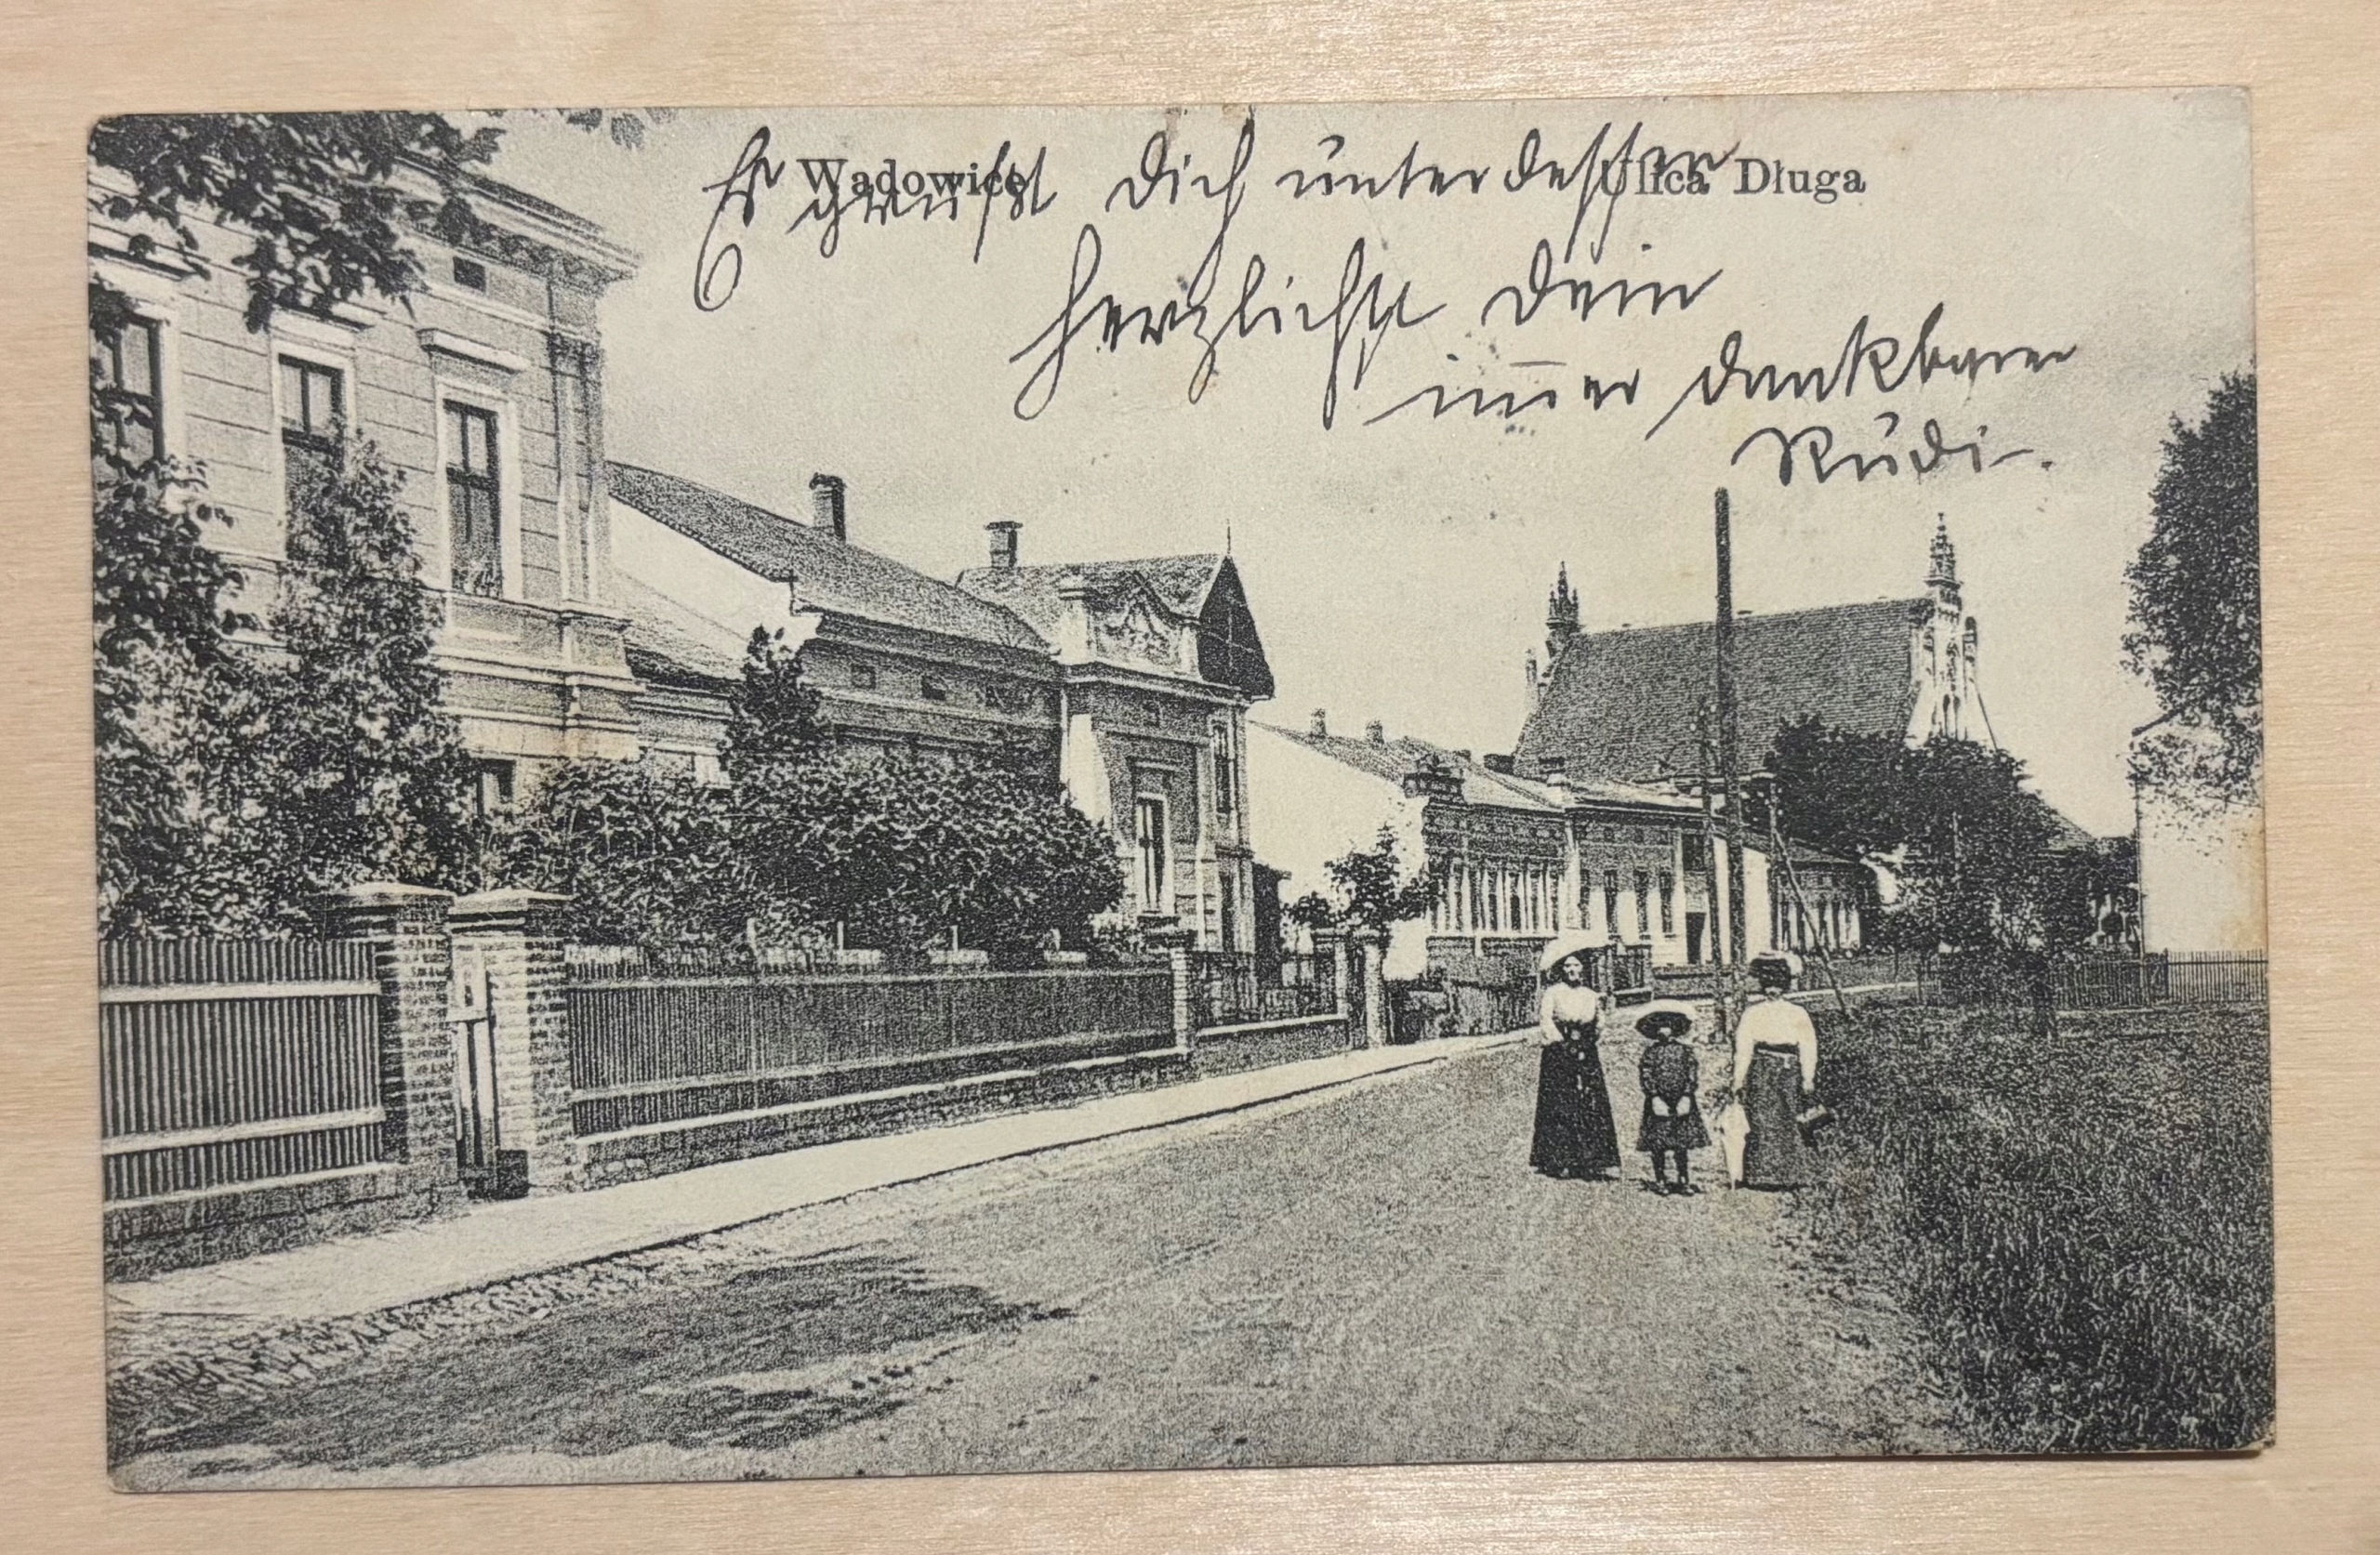 Wadowice Ulica Długa
Es grüsst Dich unterdessen
herzlichst Dein
im̅er dankbarer
Rudi.